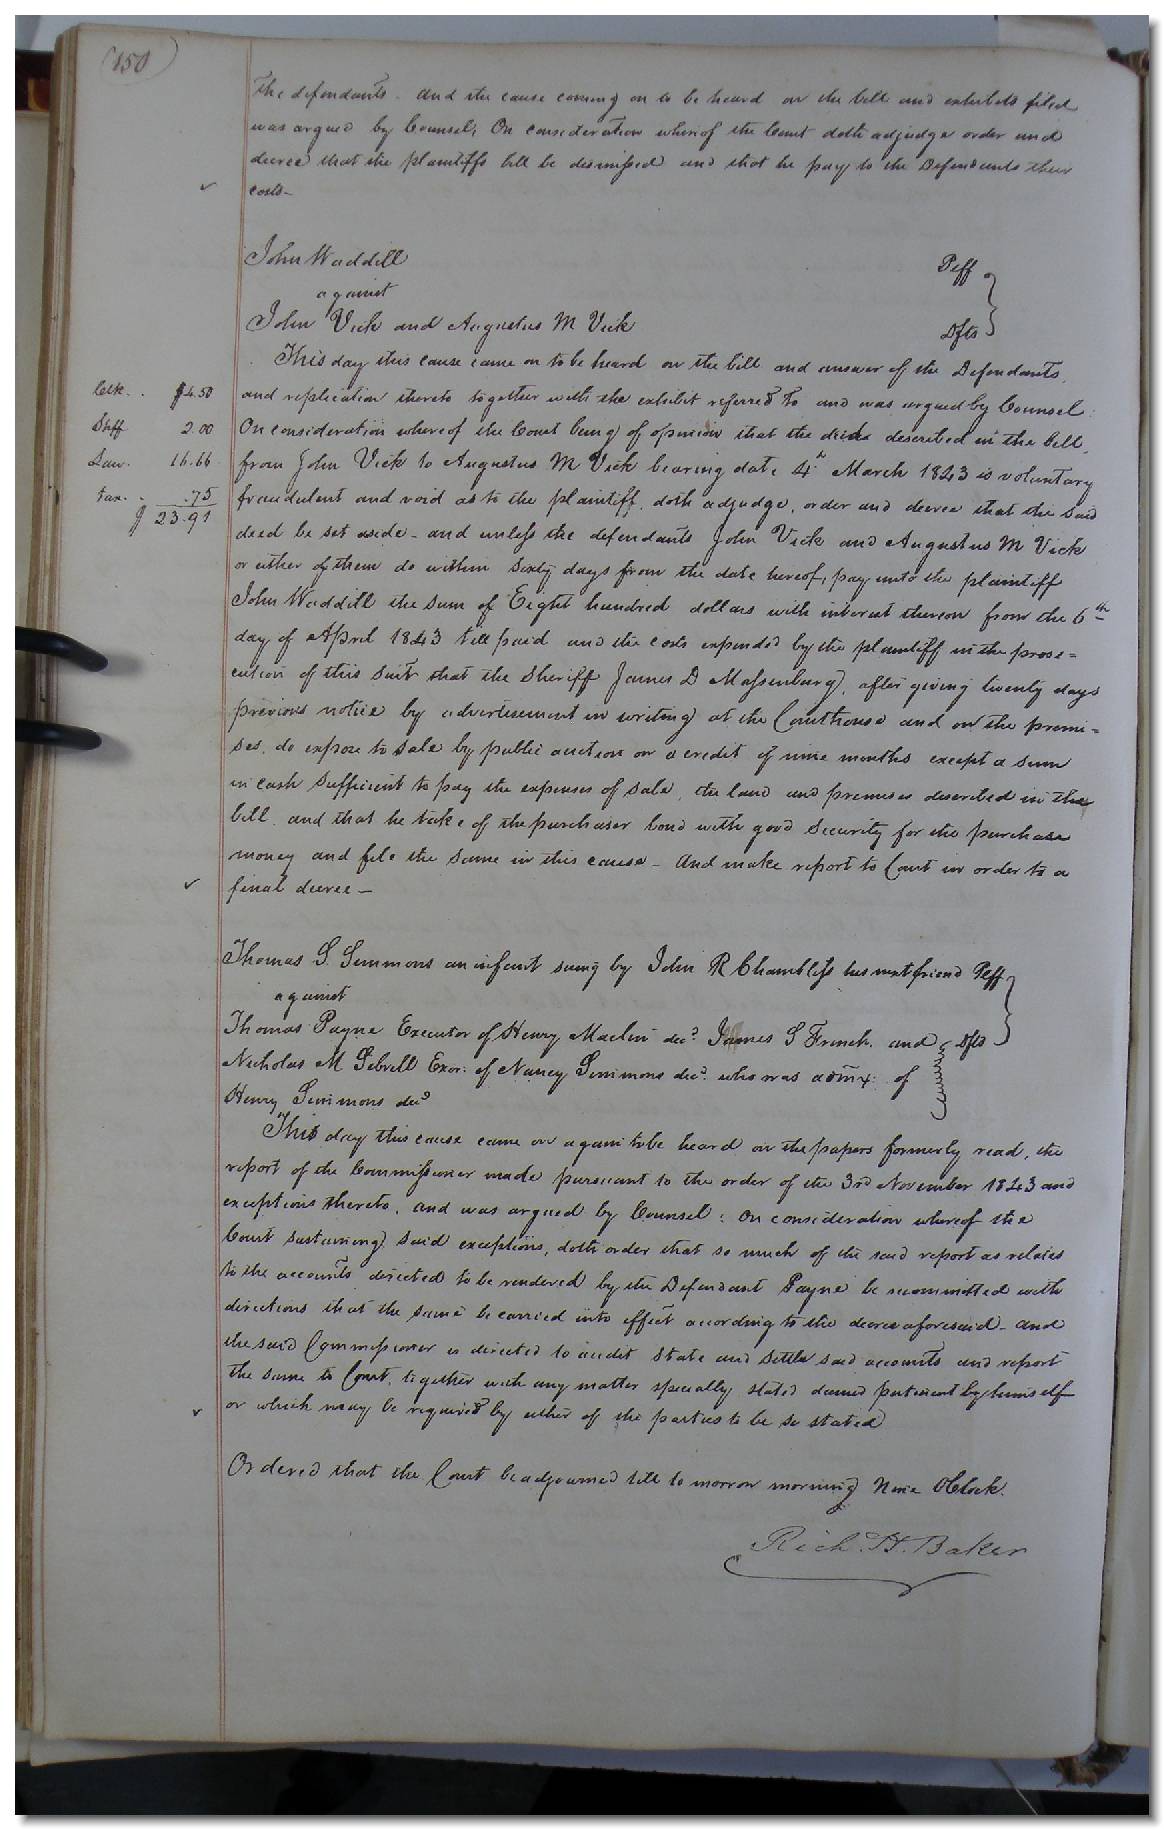 (150)
The defendants. And the cause coming on to be heard on the bill and exhibits filed
was argued by Counsel; On consideration whereof the Court doth adjudge order and
decree that the plaintiffs bill be dismissed and that he pay to the Defendants their
costs-
John Waddill Plff
against
John Vick and Augustus M Vick Dfts
This day this cause came on to be heard on the bill and answer of the Defendants,
Clk. . $4.50
and replication thereto together with the exhibit referred to and was argued by Counsel:
Shff 2.00
On consideration whereof the Court being of opinion that the deed described in the bill,
Law. 16.66
from John Vick to Augustus M Vick bearing date 4th March 1843 is voluntary
tax. . .75
fraudulent and void as to the plaintiff, doth adjudge, order and decree that the said
$ 23.91
deed be set aside - and unless the defendants John Vick and Augustus M Vick
or either of them do within sixty days from the date hereof, pay unto the plaintiff
John Waddill the sum of Eight hundred dollars with interest thereon from the 6th
day of April 1843 till paid and the costs expended by the plaintiff in the prose=
cution of this suit that the Sheriff James D Massenburg, after giving twenty days
previous notice by advertisement in writing at the Courthouse and on the premi=
ses, do expose to sale by public auction on a credit of nine months except a sum
in cash sufficient to pay the expenses of sale, the land and premises described in the
bill, and that he take of the purchaser bond with good security for the purchase
money and file the same in this cause - And make report to Court in order to a
final decree -
Thomas S. Simmons an infant suing by John R Chambliss his next friend Plff
against
Thomas Payne Executor of Henry Maclin decd James S French. and Dfts
Nicholas M Sebrell Exor: of Nancy Simmons decd. who was admx: of
Henry Simmons decd
This day this cause came on again to be heard on the papers formerly read, the
report of the Commissioner made pursuant to the order of the 3rd November 1843 and
exceptions thereto, and was argued by Counsel: On consideration whereof the
Court sustaining said exceptions, doth order that so much of the said report as relates
to the accounts directed to be rendered by the Defendant Payne be recommitted with
directions that the same be carried into effect according to the decree aforesaid - And
the said Commissioner is directed to audit state and settle said accounts and report
the same to Court, together with any matter specially stated deemed pertinent by himself
or which may be required by either of the parties to be so stated
Ordered that the Court be adjourned till to morrow morning Nine OClock.
Rich. H. Baker